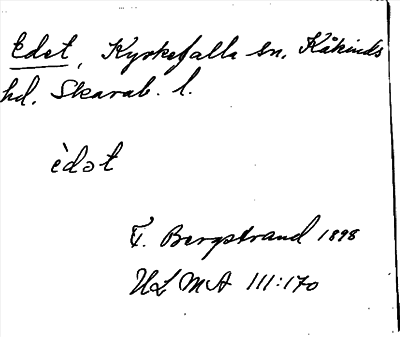 Edet, Kyrkefalla sn. Kåkinds
hd. Skarab. l.
èdət
T. Bergstrand 1898
ULMA 111:170